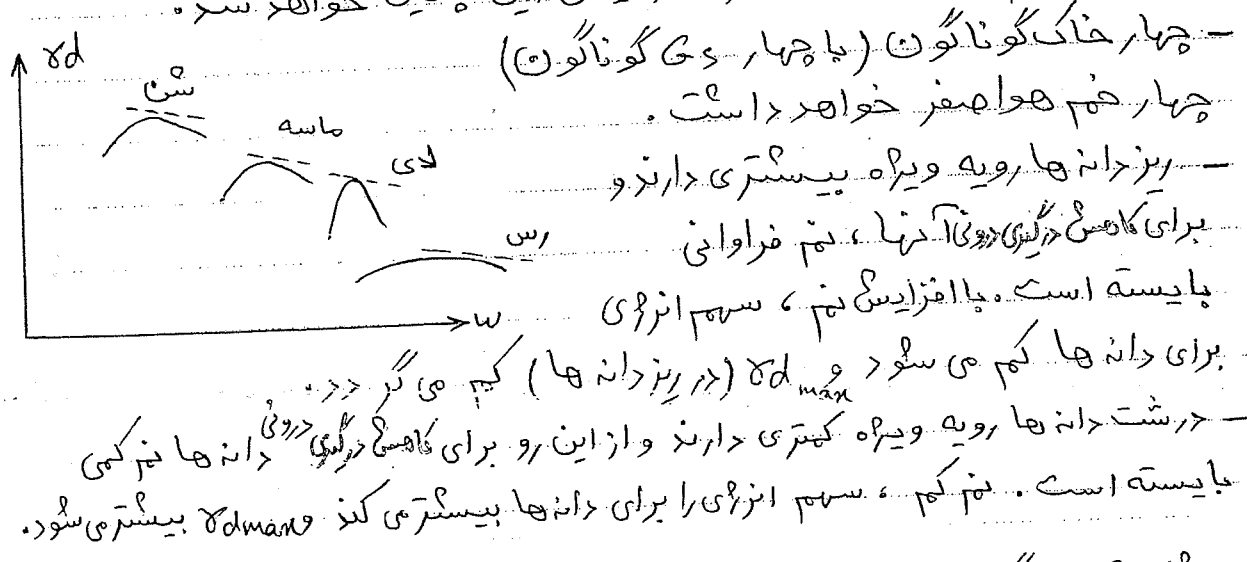 خواهد شد.
- چهار خاک گوناگون (با چهار Gs گوناگون)
چهار خم هوا صفر خواهد داشت.
- ریز دانه ها رویه ویژه بیشتری دارند و
برای کاهش درگیری درونی آنها، نم فراوانی
بایسته است. با افزایش نم، سهم انرژی
برای دانه ها کم می شود و γd max (در ریز دانه ها) کم می گردد.
- درشت دانه ها رویه ویژه کمتری دارند و از این رو برای کاهش درگیری درونی دانه ها نم کمی
بایسته است. نم کم، سهم انرژی را برای دانه ها بیشتر می کند و γd max بیشتر می شود.
γd
شن
ماسه
لای
رس
ω